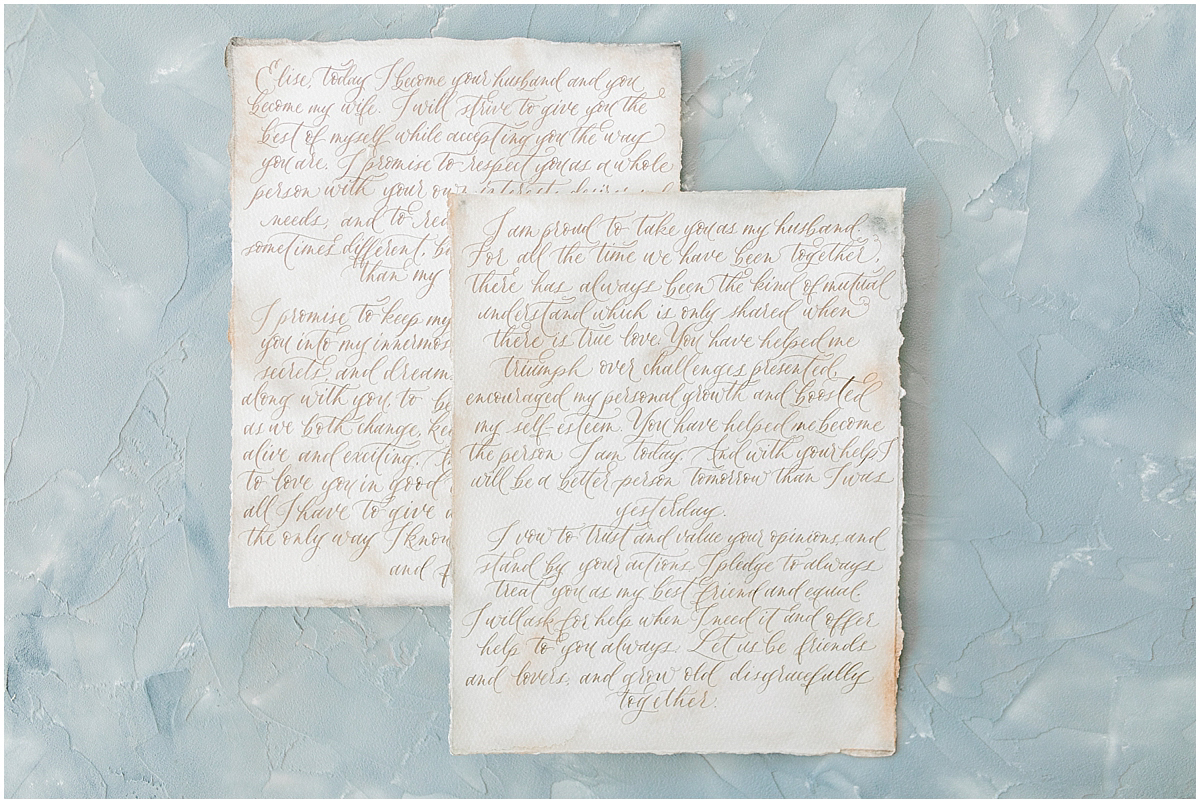 Elise, today I become your husband and you
become my wife. I will strive to give you the
best of myself while accepting you the way
you are. I promise to respect you as a whole
person with your own interest, desires and
needs, and to
sometimes different,
than my
I promise to keep my
you into my innermos
secrets and dreams
along with you, to
as we both change,
alive and exciting.
to love you in good
all I have to give
the only way I know
and
I am proud to take you as my husband.
For all the time we have been together,
there has always been the kind of mutual
understand which is only shared when
there is true love. You have helped me
triumph over challenges presented,
encouraged my personal growth and boosted
my self-esteem. You have helped me become
the person I am today. And with your help I
will be a better person tomorrow than I was
yesterday.
I vow to trust and value your opinions and
stand by your actions. I pledge to always
treat you as my best friend and equal.
I will ask for help when I need it and offer
help to you always. Let us be friends
and lovers, and grow old disgracefully
together.